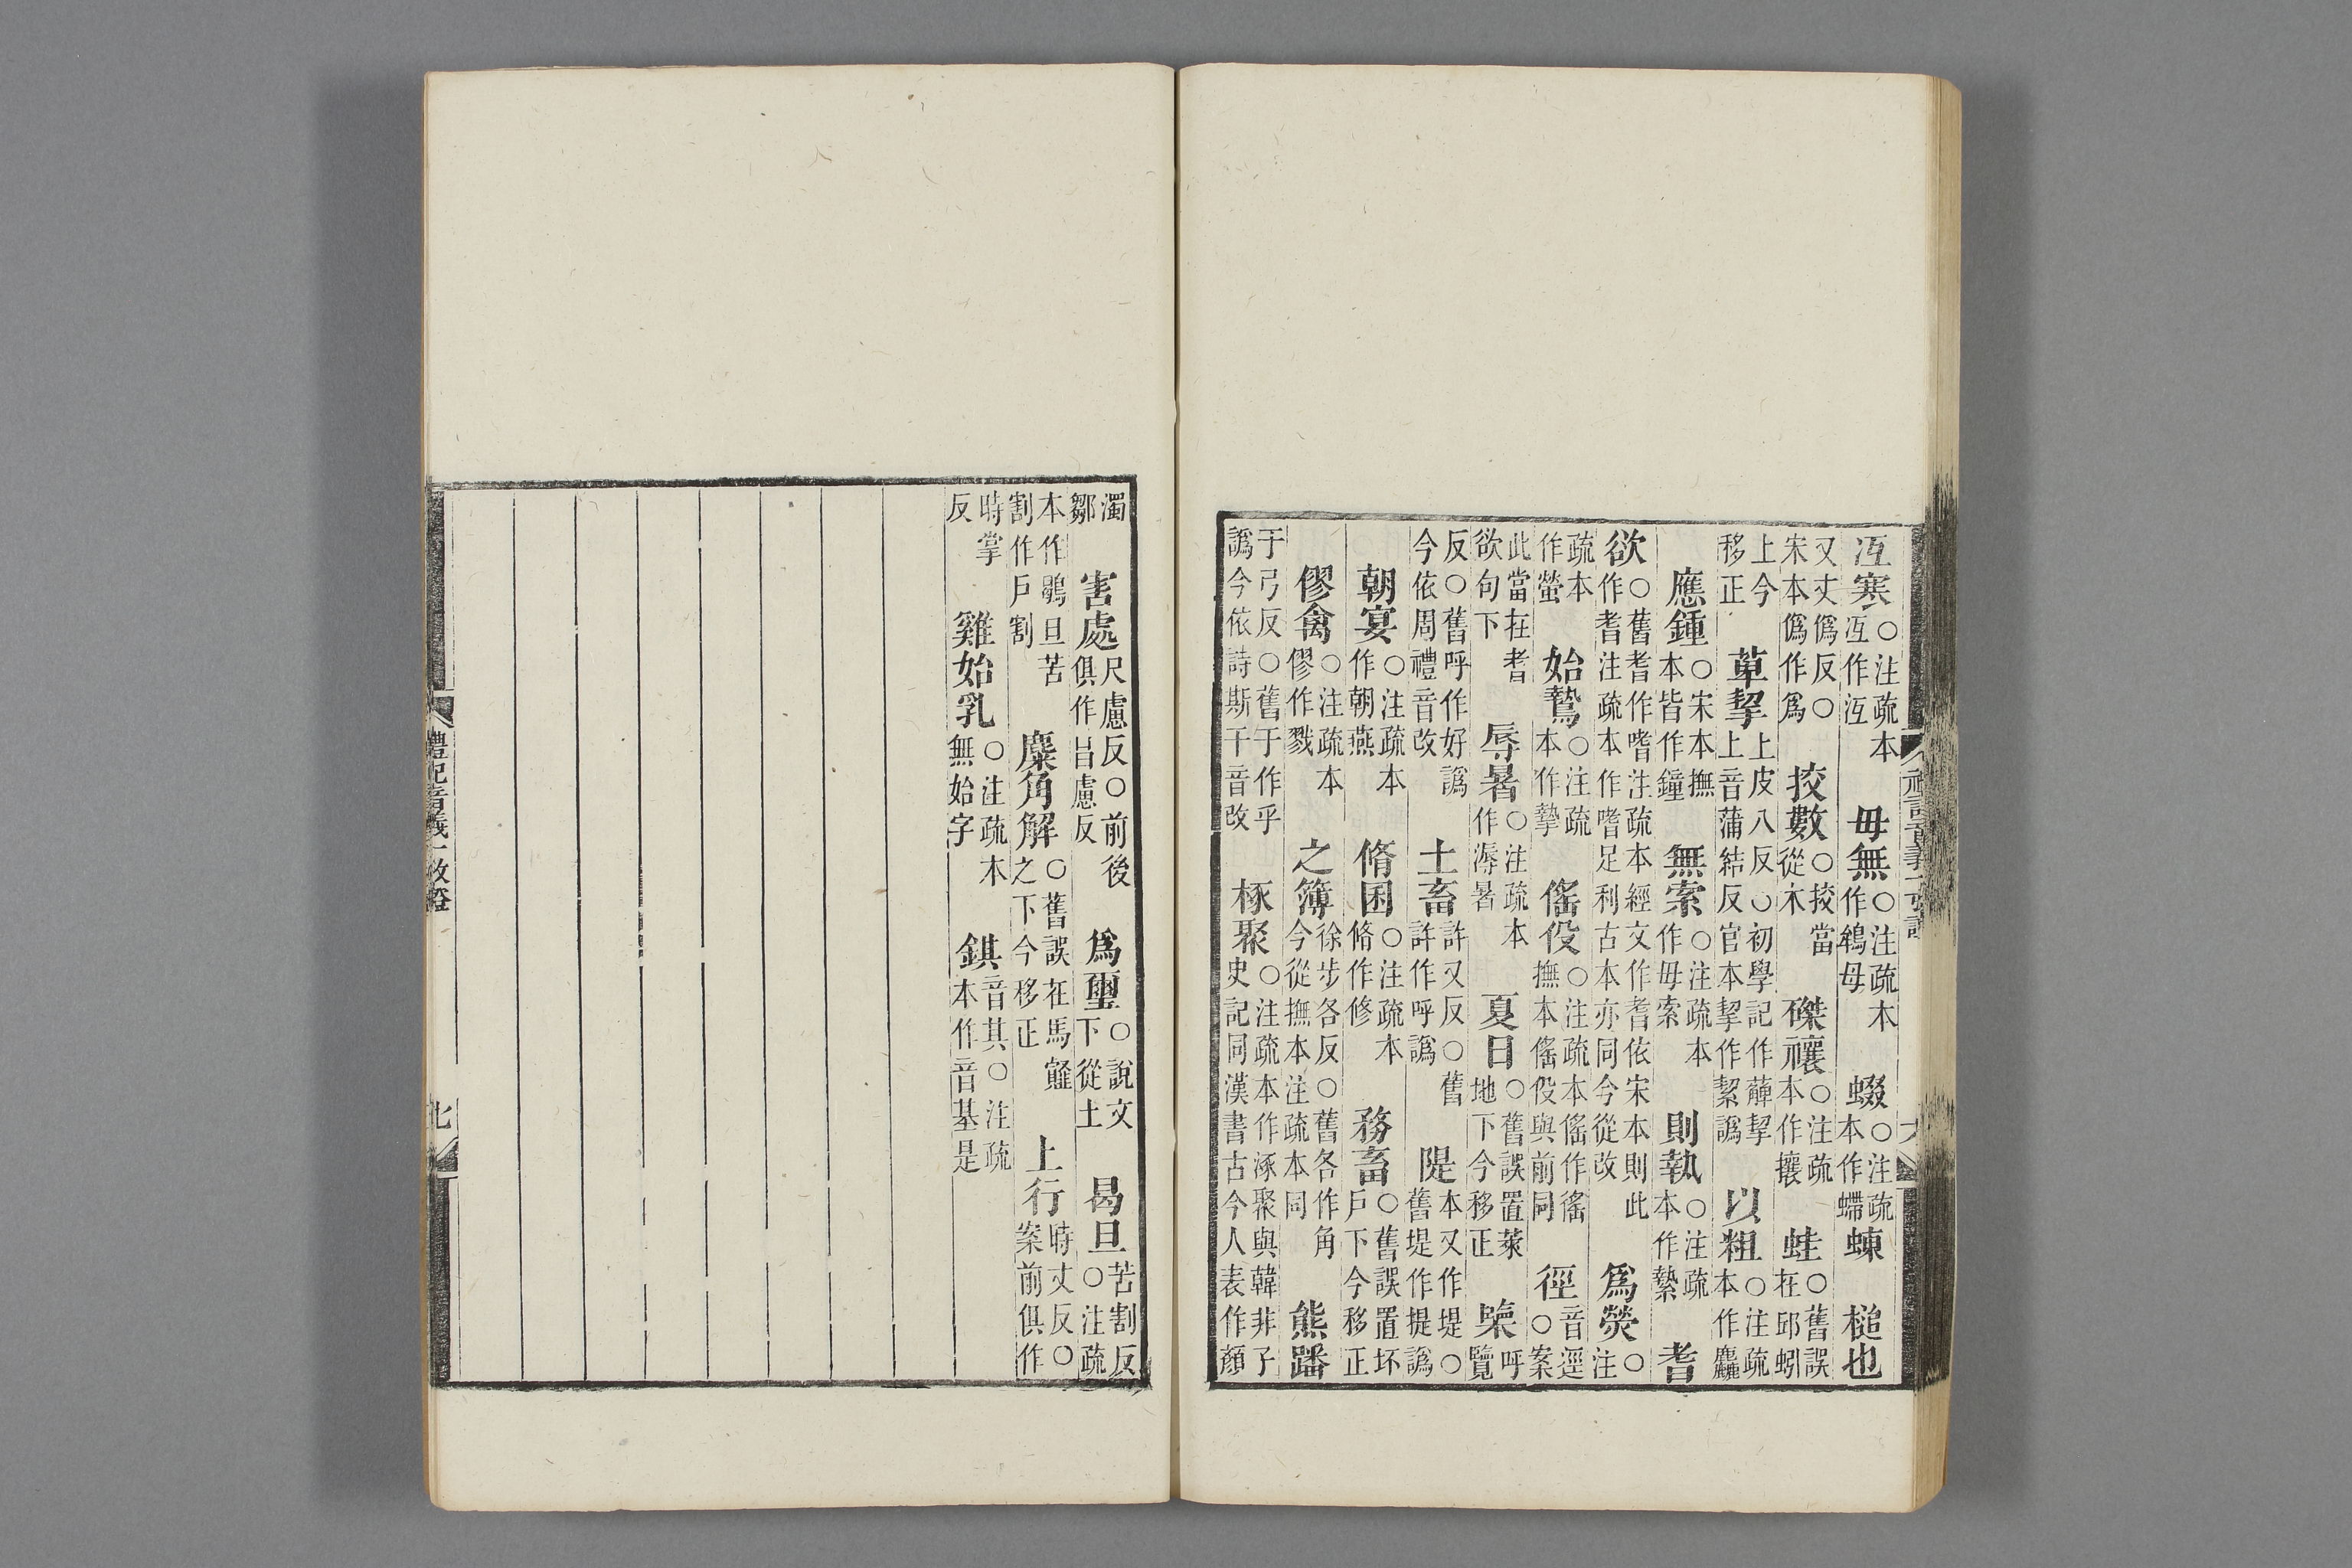 冱寒○注疏本冱作沍 毋無○注疏本作鴾母 蝃○注疏本作蠕蝀 槌也
又丈僞反○宋本僞作爲 挍數○挍當從木 磔禳○注疏本作攘 蛙○舊誤在邱蚓
上今移正 萆挈上皮八反○初學記作薢挈上音蒲結反官本挈作絜譌 以粗○注疏本作麤
應鍾○宋本撫本皆作鐘 無索○注疏本作毋索 則執○注疏本作縶 耆
欲○舊耆作嗜注疏本經文作耆依宋本則此作耆注疏本作嗜足利古本亦同今從改 爲熒○注
疏本作螢 始鷙○注疏本作摯 傜役○注疏本傜作徭撫本傜伇與前同 徑音逕○案
此當在耆欲句下 辱暑○注疏本作溽暑 夏日○舊誤置萊地下今移正 㮣呼覽
反○舊呼作好譌今依周禮音改 土畜許又反○舊許作呼譌 隄本又作堤○舊堤作提譌
朝宴○注疏本作朝燕 脩囷○注疏本脩作修 務畜○舊誤置坏戶下今移正
僇禽○注疏本僇作戮 之簿徐步各反○舊各作角今從撫本注疏本同 熊蹯
于弓反○舊于作乎譌今依詩斯干音改 椓聚○注疏本作涿聚與韓非子史記同漢書古今人表作顏
禮記音義一攷證
濁鄒 害處尺慮反○前後俱作昌慮反 爲璽○說文下從土 曷旦苦割反○注疏
本作鶡旦苦割作戶割 麋角解○舊誤在馬韰之下今移正 上行時丈反○案前俱作
時掌反 雞始乳○注疏本無始字 錤音其○注疏本作音基是
禮記音義一攷證